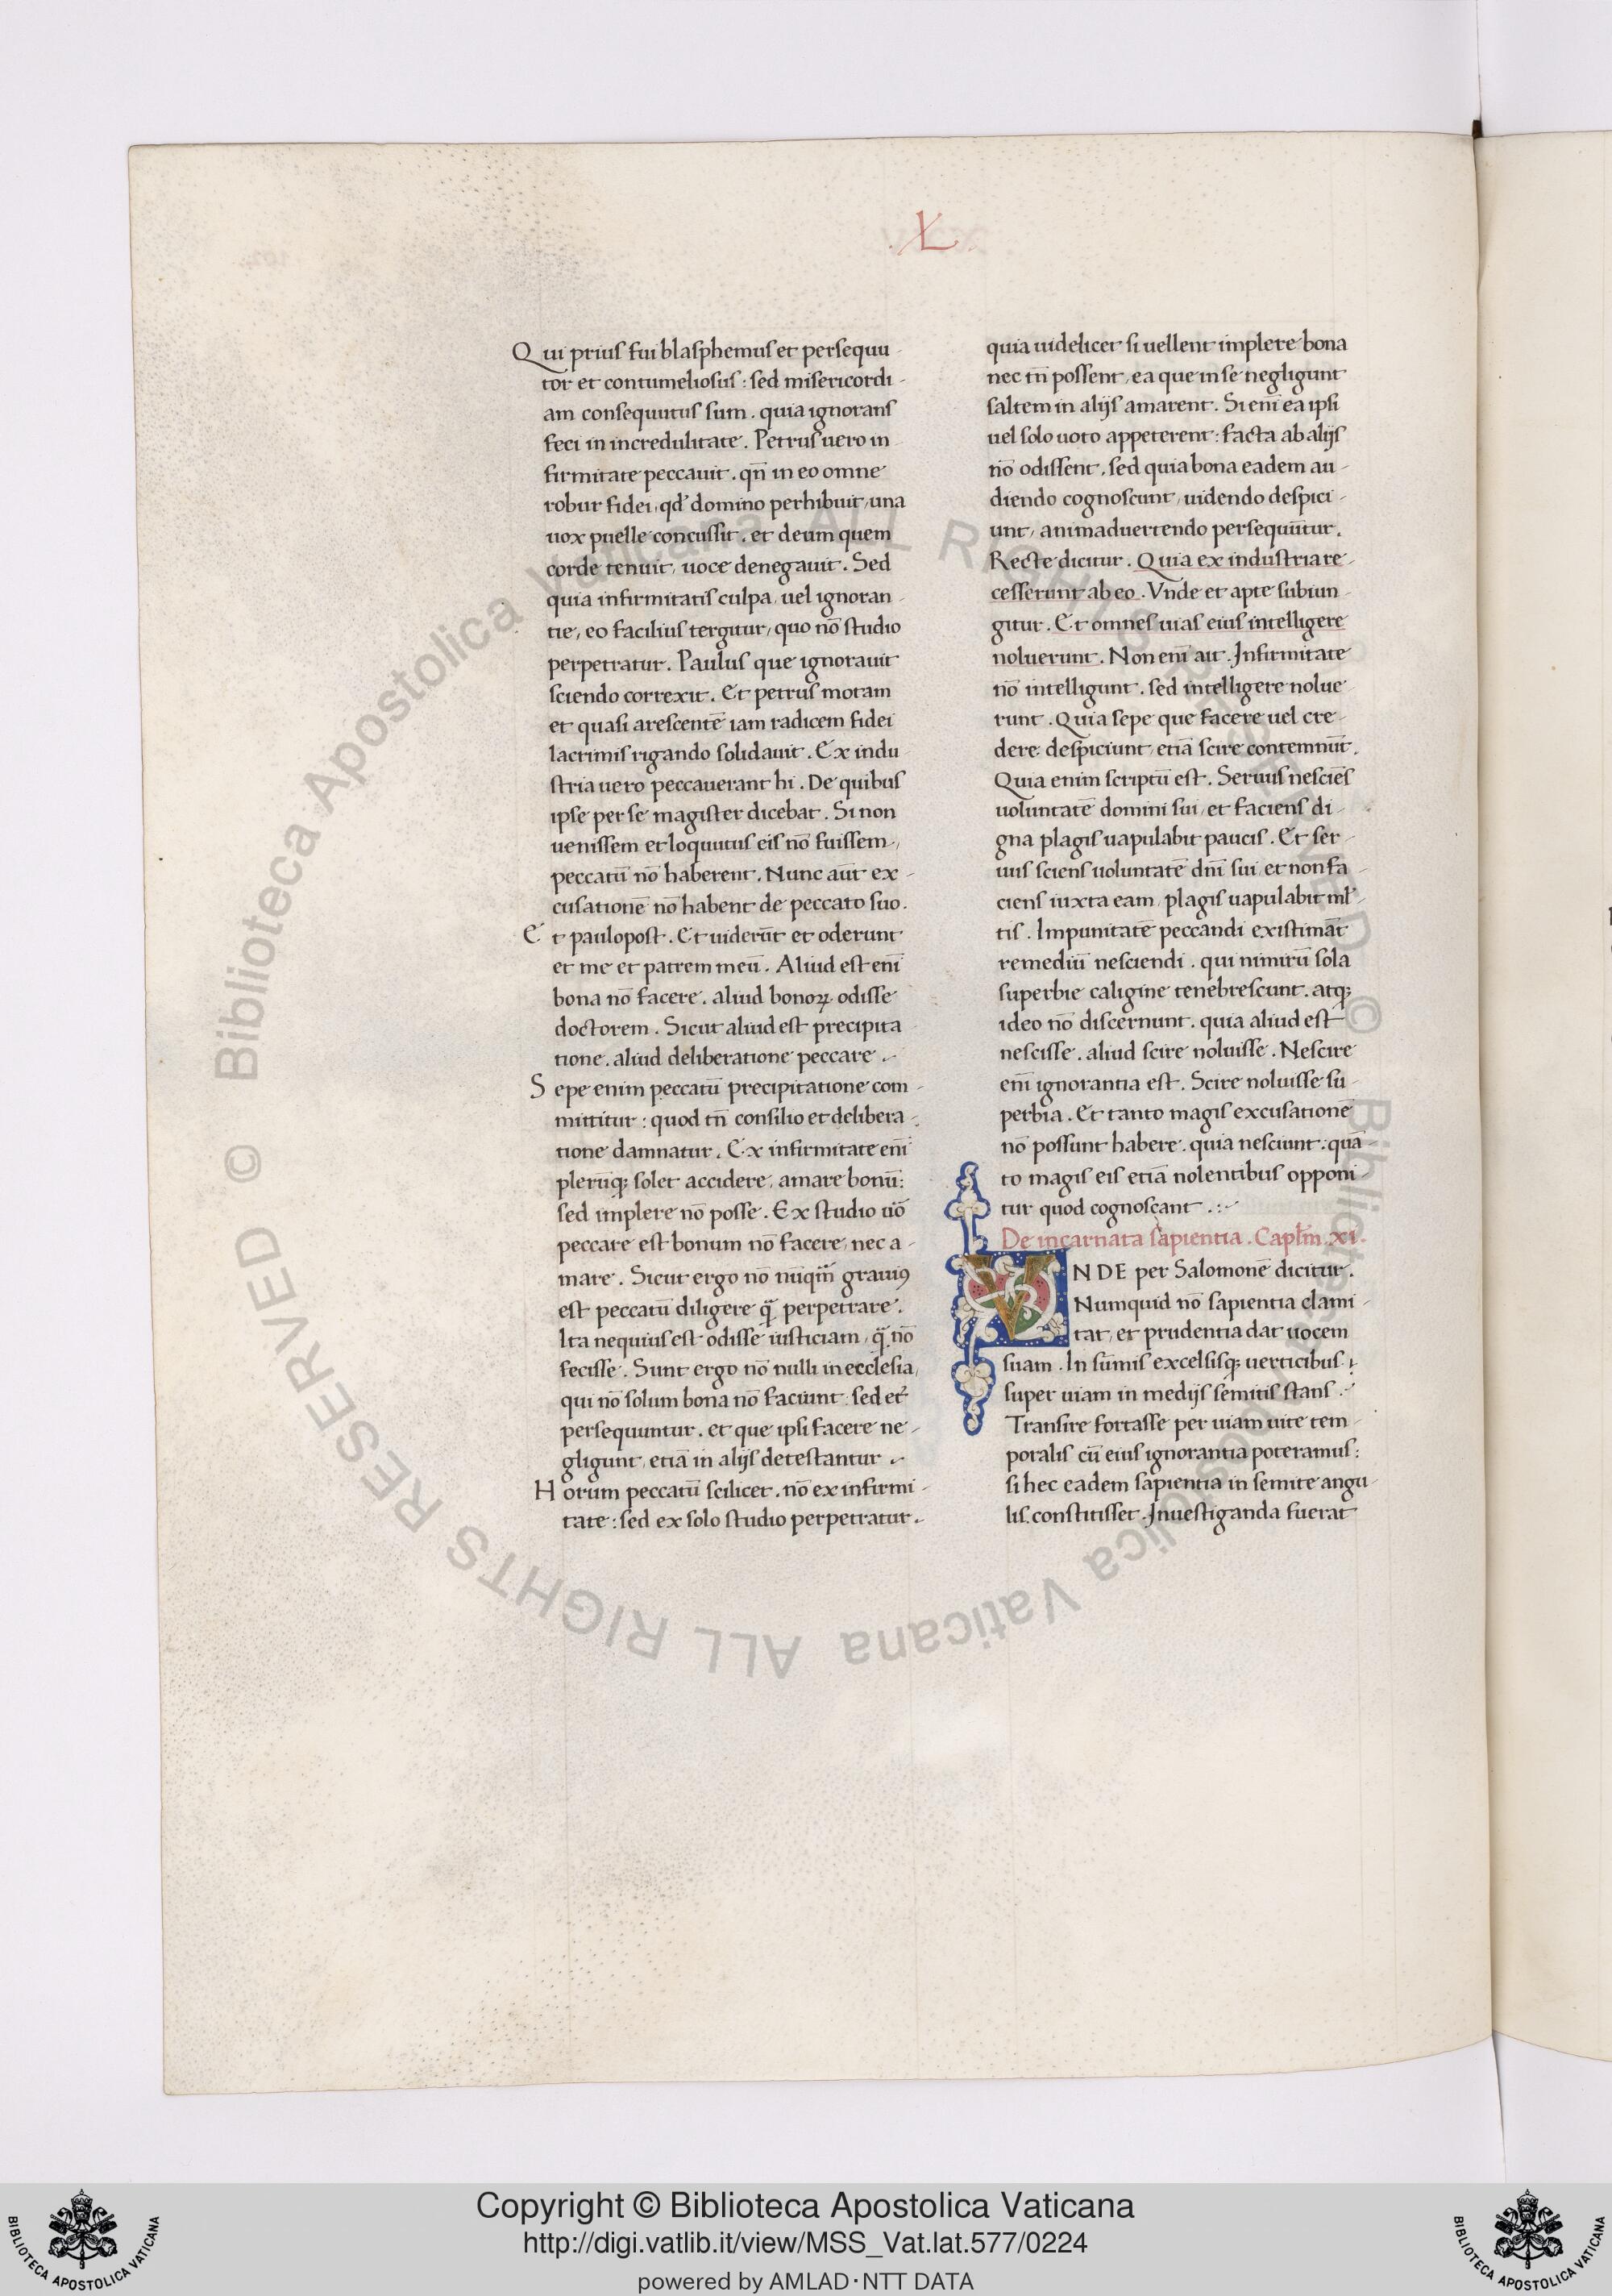 .XL.
Qui prius fui blasphemus et persequu-
tor et contumeliosus: sed misericordi-
am consequutus sum. quia ignorans
feci in incredulitate. Petrus uero in
firmitate peccauit. qn̄ in eo omne
robur fidei, qd' domino perhibuit, una
uox puelle concussit. et deum quem
corde tenuit, uoce denegauit. Sed
quia infirmitatis culpa, uel ignoran-
tie, eo facilius tergitur, quo nō studio
perpetratur. Paulus que ignorauit
sciendo correxit. Et petrus motam
et quasi arescentē iam radicem fidei
lacrimis rigando solidauit. Ex indu-
stria uero peccauerant hi. De quibus
ipse per se magister dicebat. Si non
uenissem et loquutus eis nō fuissem,
peccatū nō haberent. Nunc aūt ex-
cusationē nō habent de peccato suo.
Et paulopost. Et uiderūt et oderunt
et me et patrem meū. Aliud est enī
bona nō facere. aliud bonoꝝ odisse
doctorem. Sicut aliud est precipita
tione. aliud deliberatione peccare.
Sepe enim peccatū precipitatione com-
mittitur: quod tn̄ consilio et delibera-
tione damnatur. Ex infirmitate enī
plerūq; solet accidere, amare bonū:
sed implere nō posse. Ex studio uō
peccare est bonum nō facere, nec a-
mare. Sicut ergo nō nūqm̄ grauiꝰ
est peccatū diligere q̄ perpetrare.
Ita nequius est odisse iusticiam, q̄ nō
fecisse. Sunt ergo nō nulli in ecclesia,
qui nō solum bona nō faciunt: sed et'
persequuntur. et que ipsi facere ne-
gligunt, etiā in alijs detestantur
Horum peccatū scilicet. nō ex infirmi-
tate: sed ex solo studio perpetratur.
quia uidelicet si uellent implere bona
nec tn̄ possent, ea que in se negligunt
saltem in alijs amarent. Si enī ea ipsi
uel solo uoto appeterent: facta ab alijs
nō odissent. sed quia bona eadem au-
diendo cognoscunt, uidendo despici-
unt, animaduertendo persequūtur.
Recte dicitur. Quia ex industria re-
cesserunt ab eo. Vnde et apte subiun-
gitur. Et omnes uias eius intelligere
noluerunt. Non enī ait. Infirmitate
nō intelligunt. sed intelligere nolue-
runt. Quia sepe que facere uel cre-
dere despiciunt, etiā scire contemnūt.
Quia enim scriptū est. Seruus nesciēs
uoluntatē domini sui, et faciens di-
gna plagis uapulabit paucis. Et ser-
uus sciens uoluntatē dn̄i sui, et non fa-
ciens iuxta eam, plagis uapulabit ml'-
tis. Impunitatē peccandi existimāt
remediū nesciendi. qui nimirū sola
superbie caligine tenebrescunt. atq;
ideo nō discernunt. quia aliud est
nescisse. aliud scire noluisse. Nescire
enī ignorantia est. Scire noluisse su-
perbia. Et tanto magis excusationē
nō possunt habere. quia nesciunt: quā-
to magis eis etiā nolentibus opponi-
tur quod cognoscant.:-
De incarnata sapientia. Capl'm. xi.
VNDE per Salomonē dicitur.
Numquid nō sapientia clami-
tat, et prudentia dat uocem
suam. In sūmis excelsisq; uerticibus.
super uiam in medijs semitis stans.
Transire fortasse per uiam uite tem-
poralis cū eius ignorantia poteramus:
si hec eadem sapientia in semite angu-
lis constitisset. Inuestiganda fuerat
© Biblioteca Apostolica Vaticana ALL RIGHTS RESERVED © Biblioteca Apostolica Vaticana ALL RIGHTS RESERVED
BIBLIOTECA APOSTOLICA VATICANA
Copyright © Biblioteca Apostolica Vaticana
http://digi.vatlib.it/view/MSS_Vat.lat.577/0224
powered by AMLAD·NTT DATA
BIBLIOTECA APOSTOLICA VATICANA